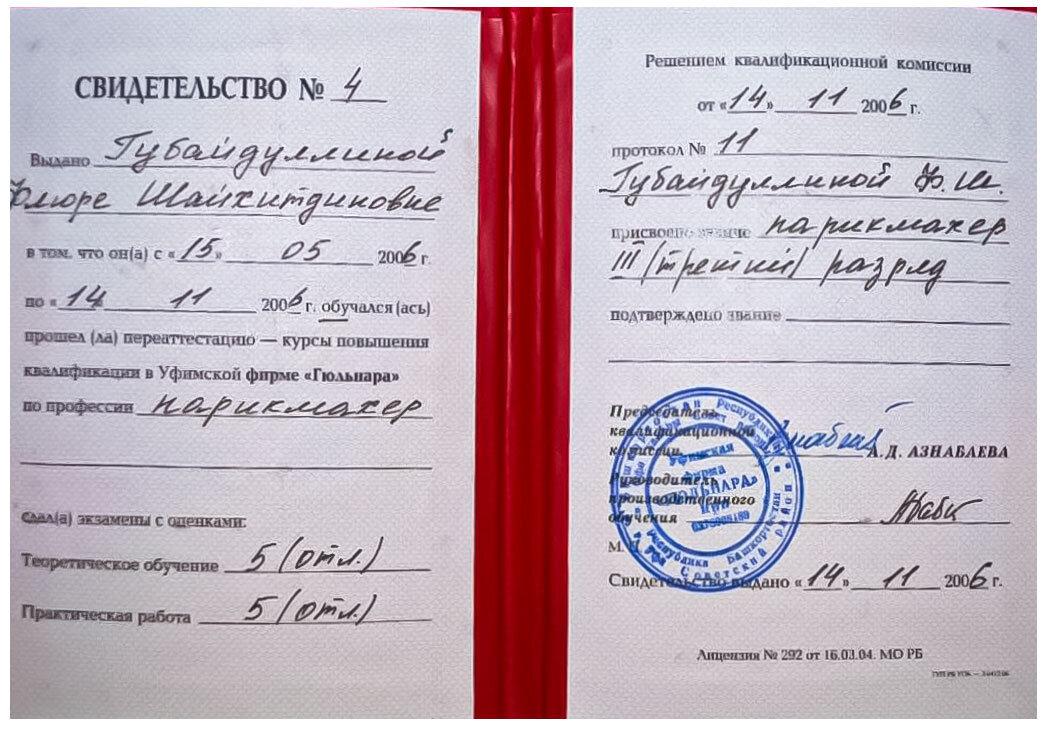 СВИДЕТЕЛЬСТВО № 4
Выдано Губайдуллиной
Флюре Шайхитдиновне
в том, что он(а) с «15» 05 2006 г.
по «14 11 2006 г. обучался (ась)
прошел (ла) переаттестацию — курсы повышения
квалификации в Уфимской фирме «Гюльнара»
по профессии парикмахер
сдал(а) экзамены с оценками:
Теоретическое обучение 5 (отл.)
Практическая работа 5 (отл.)
Решением квалификационной комиссии
от «14» 11 2006 г.
протокол № 11
Губайдуллиной Ф. Ш.
присвоено звание парикмахер
III (третий) разряд
подтверждено звание
Председатель
квалификационной
комиссии А. Д. АЗНАБАЕВА
Руководитель
производственного
обучения
М. П.
Свидетельство выдано «14» 11 2006 г.
Лицензия № 292 от 16.03.04. МО РБ
Уфимская
фирма
«ГЮЛЬНАРА»
Республика Башкортостан
Советский район